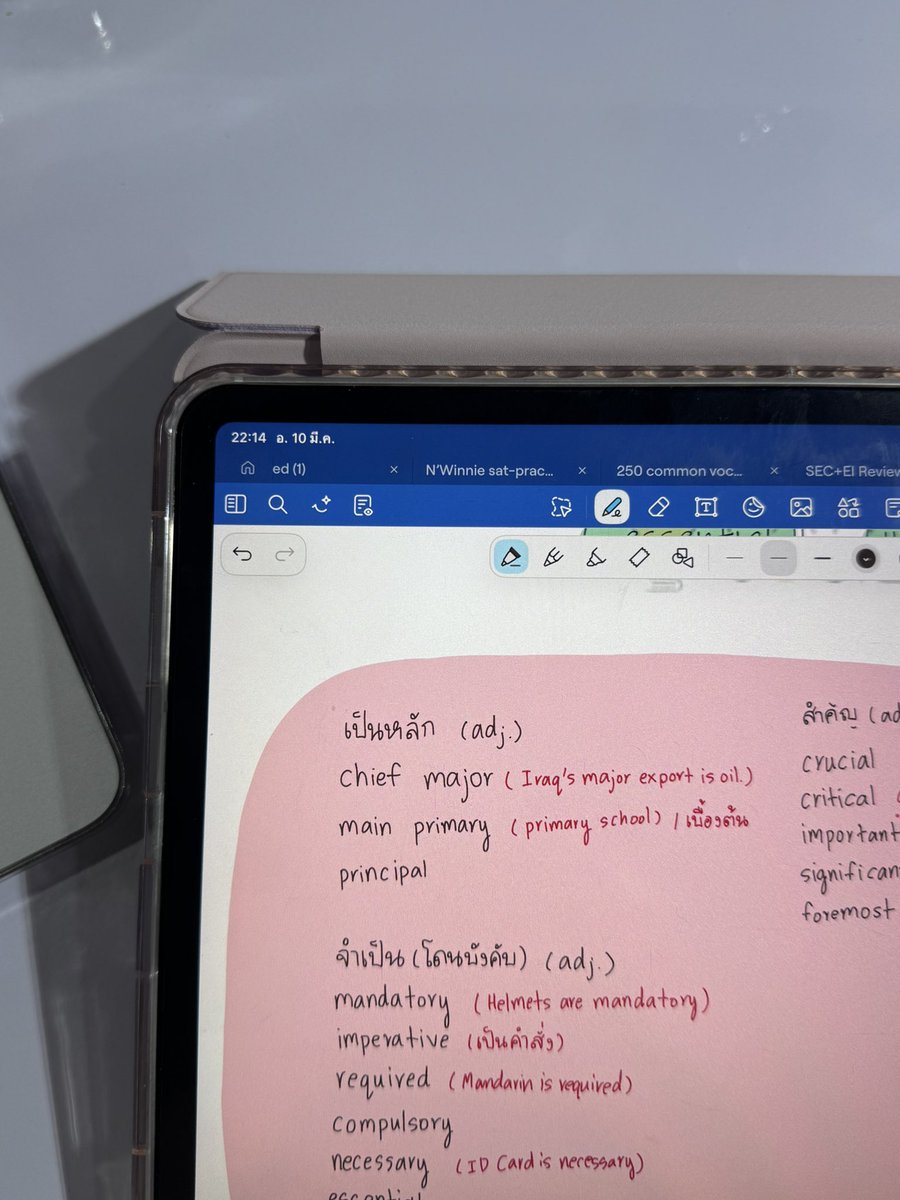 22:14 อ. 10 มี.ค.
ed (1) × N'Winnie sat-prac... × 250 common voc... × SEC+EI Review
เป็นหลัก (adj.)
chief major (Iraq's major export is oil.)
main primary (primary school) / เบื้องต้น
principal
จำเป็น (โดนบังคับ) (adj.)
mandatory (Helmets are mandatory)
imperative (เป็นคำสั่ง)
required (Mandarin is required)
compulsory
necessary (ID Card is necessary)
essential
สำคัญ (ad
crucial
critical
important
significan
foremost